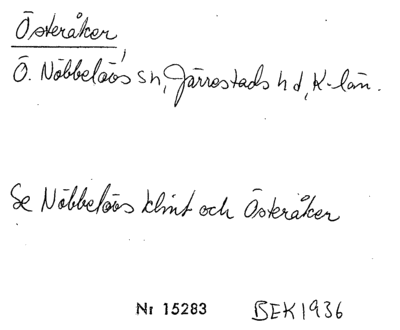 Österåker
Ö. Nöbbelövs sn, Järrestads hd, K-län.
Se Nöbbelövs klint och Österåker
Nr 15283 BEK 1936